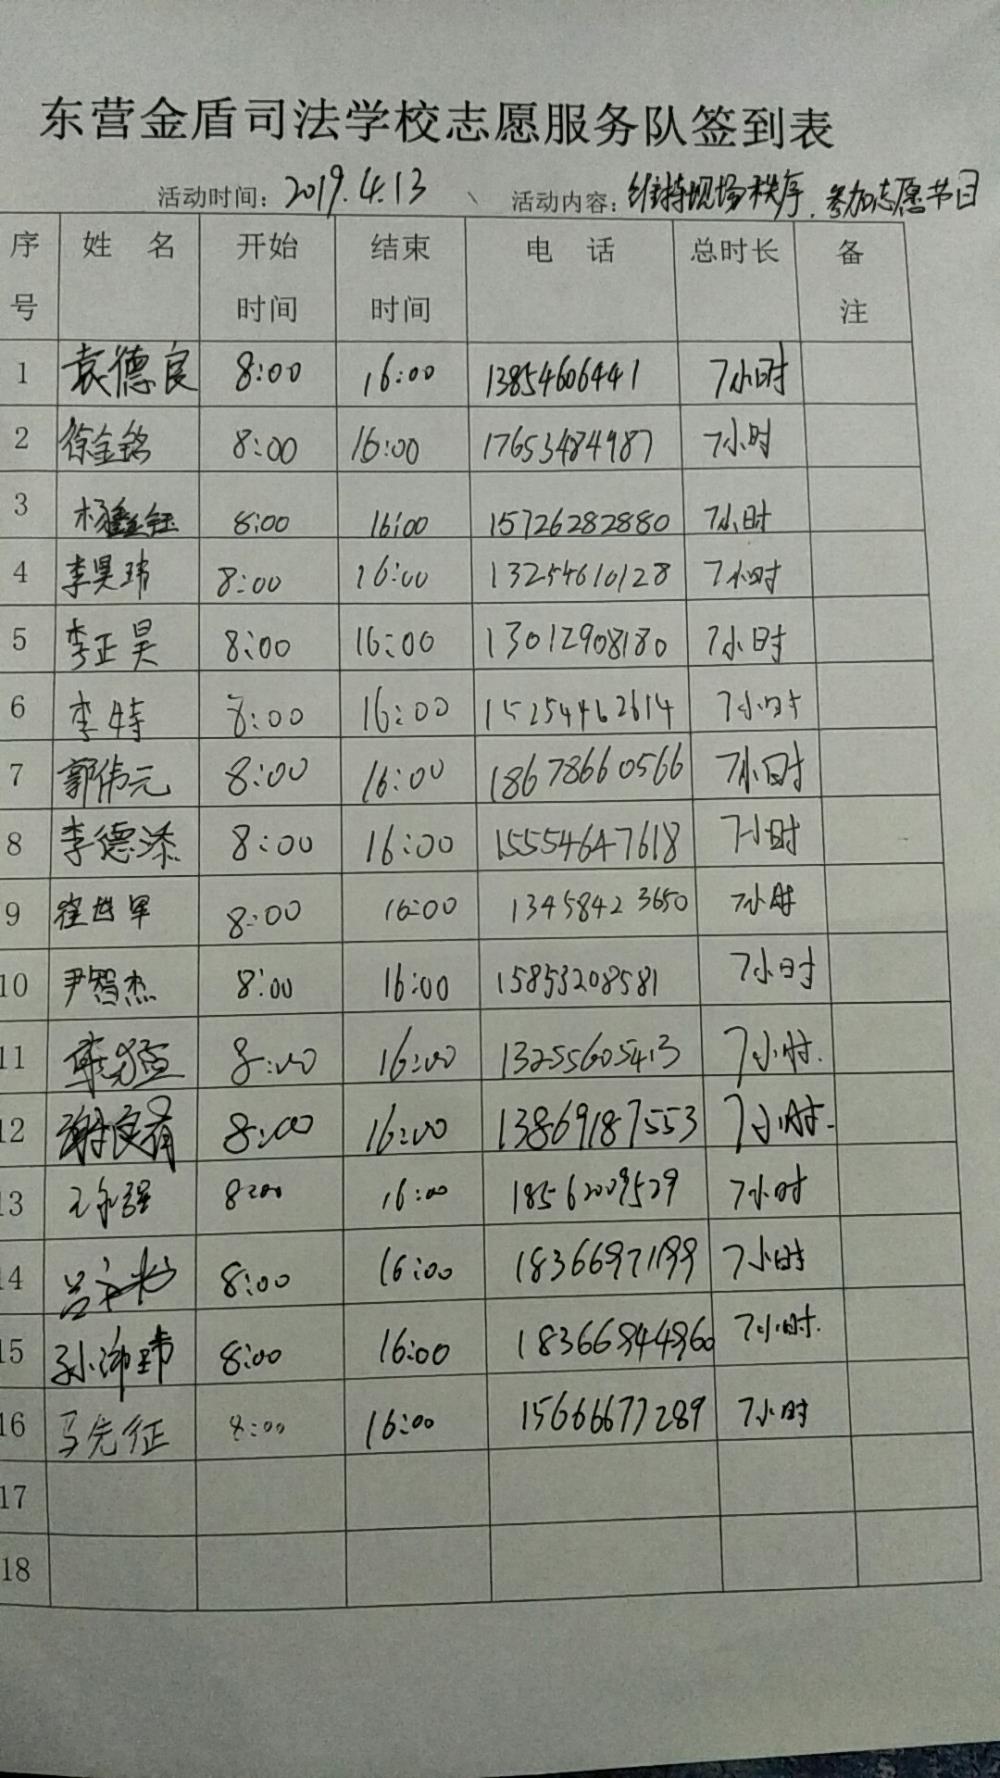 东营金盾司法学校志愿服务队签到表
活动时间：2019.4.13 活动内容：维持现场秩序、参加志愿节目
序号 姓名 开始时间 结束时间 电话 总时长 备注
1 袁德良 8:00 16:00 13854606441 7小时
2 徐金铭 8:00 16:00 17653484987 7小时
3 杨鑫钰 8:00 16:00 15726282880 7小时
4 李昊玮 8:00 16:00 13254610128 7小时
5 李正昊 8:00 16:00 13012908180 7小时
6 李特 8:00 16:00 15254462614 7小时
7 郭伟元 8:00 16:00 18678660566 7小时
8 李德添 8:00 16:00 15554647618 7小时
9 崔世军 8:00 16:00 13458423650 7小时
10 尹智杰 8:00 16:00 15853208581 7小时
11 8:00 16:00 13255605413 7小时.
12 谢良有 8:00 16:00 13869187553 7小时.
13 王永强 8:00 16:00 18562009529 7小时
14 吕 8:00 16:00 18366971199 7小时
15 孙沛玮 8:00 16:00 18366844860 7小时.
16 马先征 8:00 16:00 15666677289 7小时
17
18